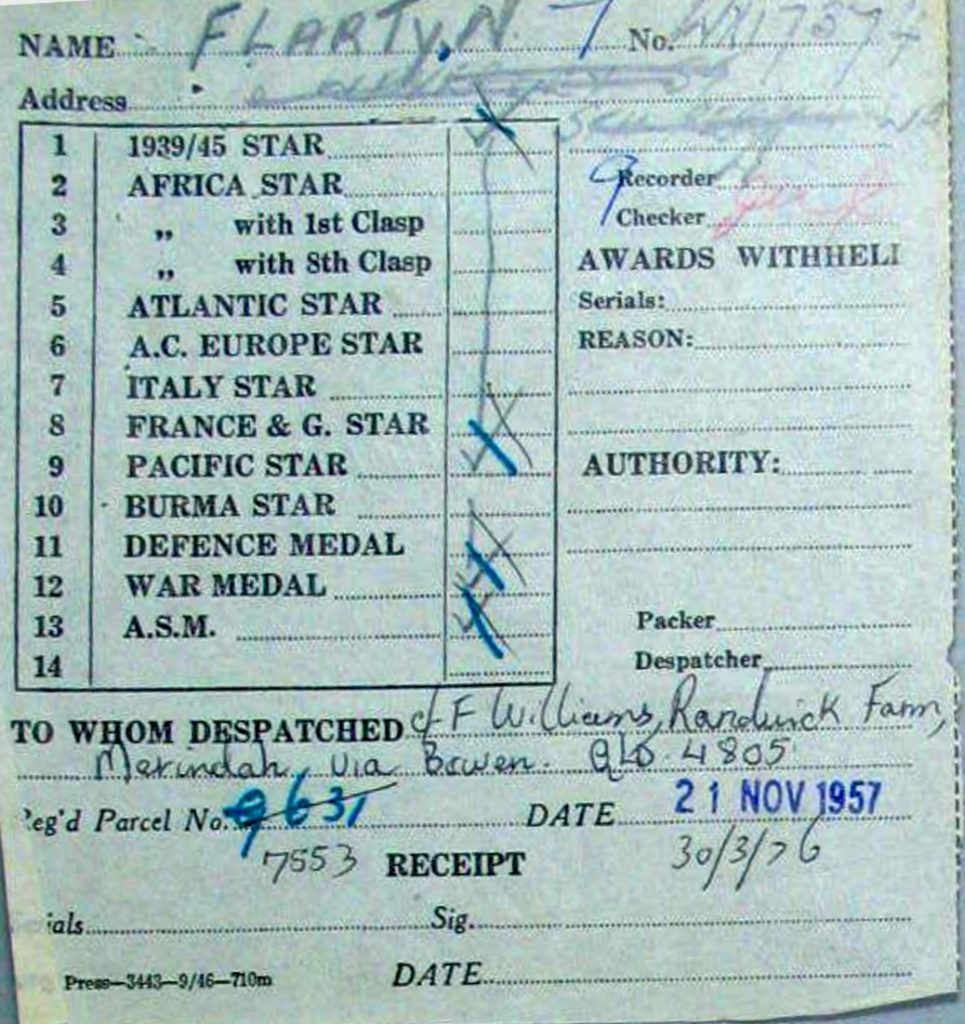 NAME FLARTY. N. 7 No. WX17374
Address
1 1939/45 STAR
2 AFRICA STAR
Recorder
3 „ with 1st Clasp
Checker
4 „ with 8th Clasp
AWARDS WITHHELI
5 ATLANTIC STAR
Serials:
6 A.C. EUROPE STAR
REASON:
7 ITALY STAR
8 FRANCE & G. STAR
9 PACIFIC STAR
AUTHORITY:
10 BURMA STAR
11 DEFENCE MEDAL
12 WAR MEDAL
13 A.S.M.
Packer
14
Despatcher
TO WHOM DESPATCHED c/ F Williams, Randwick Farm,
Merindah, via Bowen. QLD. 4805
'eg'd Parcel No. 9631 DATE 21 NOV 1957
7553 RECEIPT 30/3/76
ials Sig.
Press—3443—9/46—710m DATE